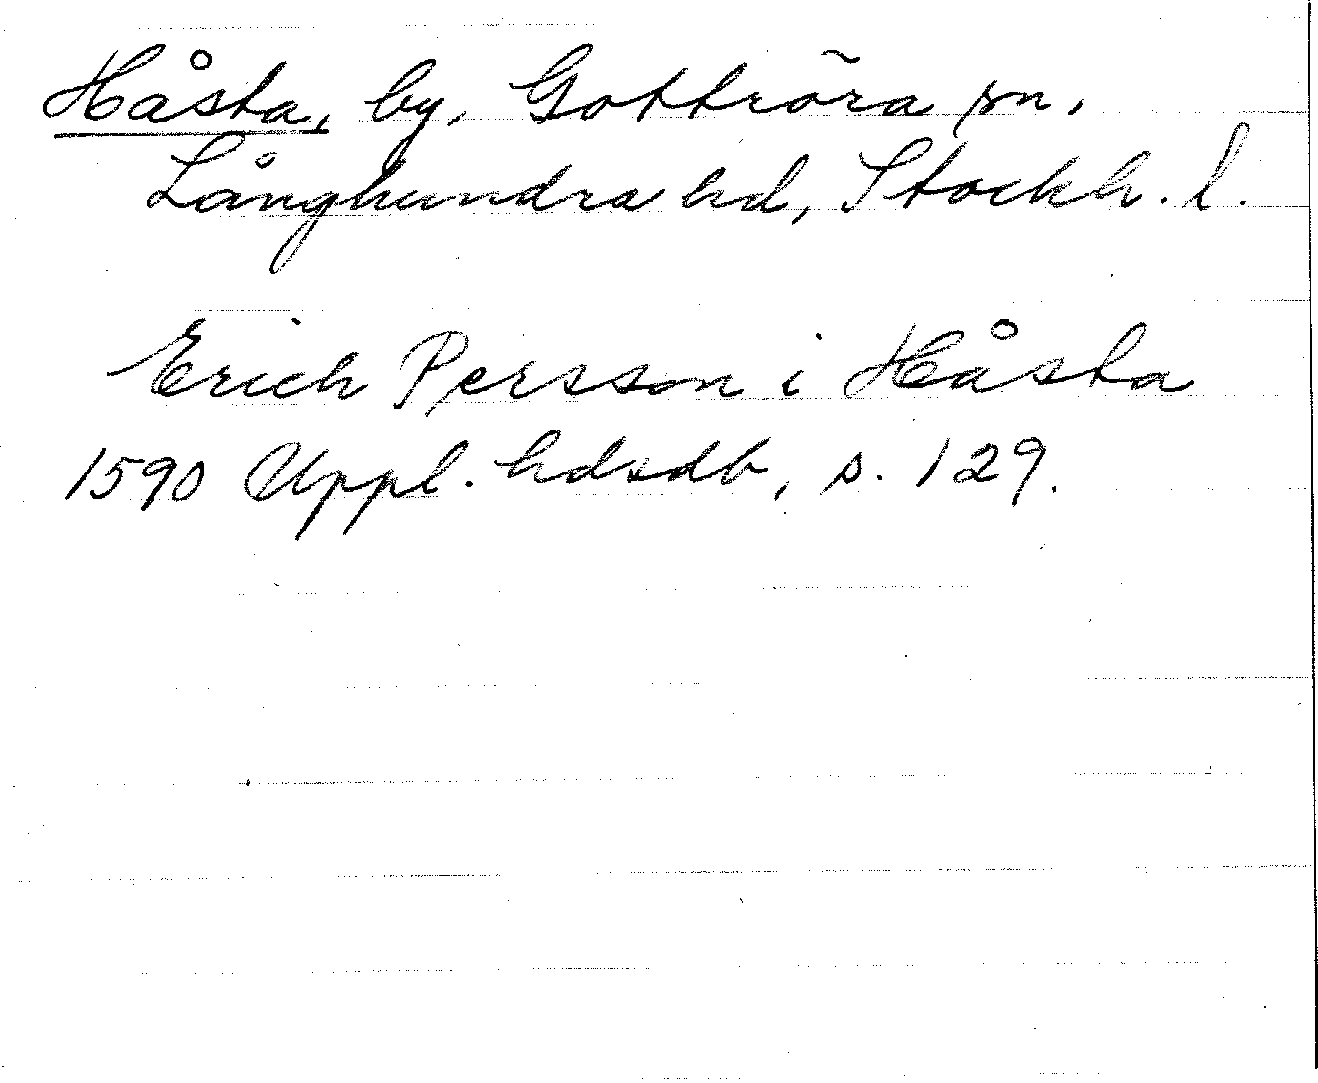 Håsta, by, Gottröra sn,
Långhundra hd, Stockh. l.
Erich Persson i Håsta
1590 Uppl. hdsdb, s. 129.